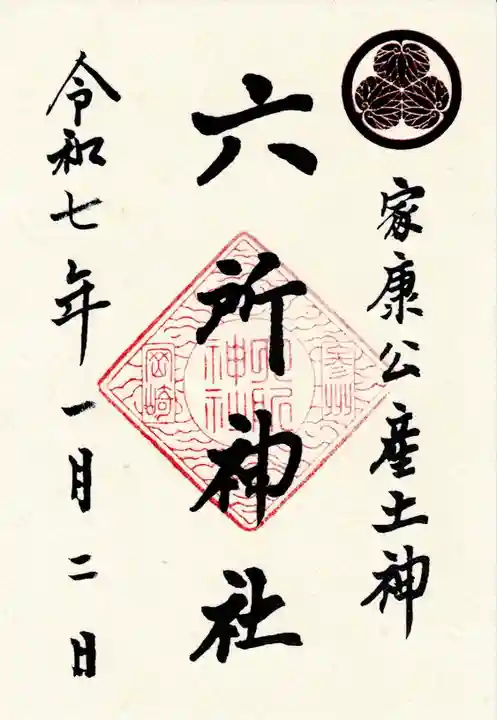 家康公産土神
六所神社
参州
六所神社
岡崎
令和七年一月二日